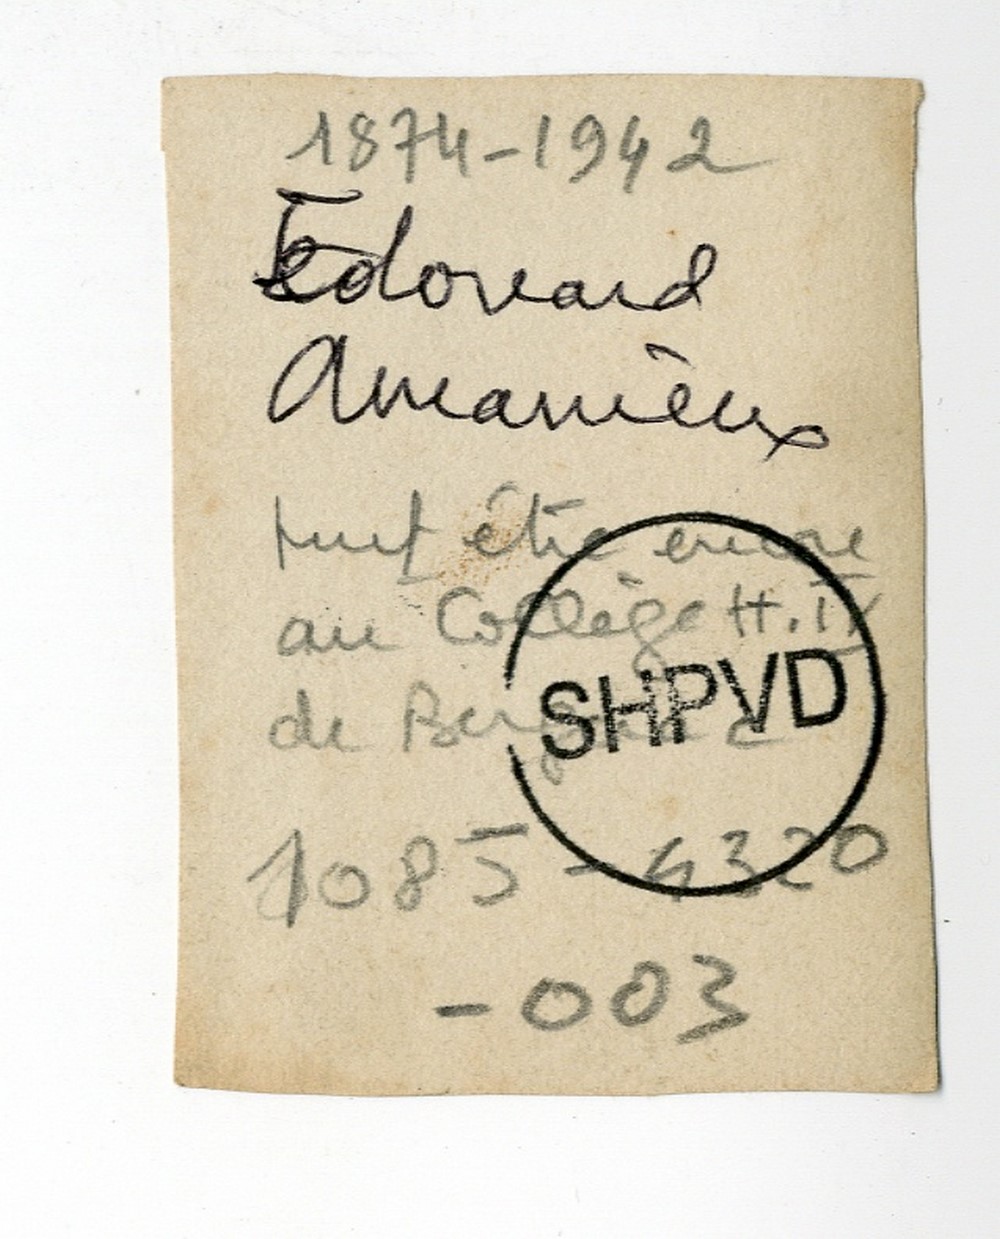 1874-1942
Edouard
Amanieux
peut être encore
au Collège H. IV
de Bergerac
SHPVD
1085-4320
-003